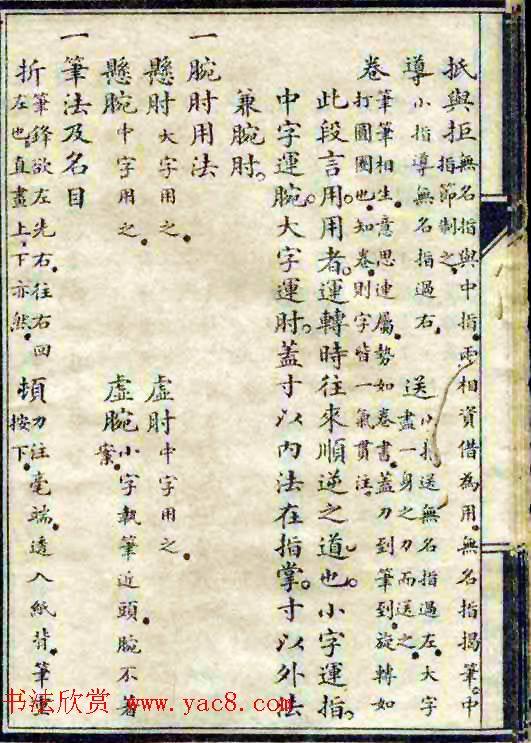 抵與拒無名指與中指兩相資借為用無名指揭筆中指節制之
導小指導無名指過右 送小指送無名指過左大字盡一身之力而送之
卷筆筆相生意思連屬勢如卷書蓋力到筆到旋轉如打圓圈也知卷則字皆一氣貫注
此段言用用者運轉時往來順逆之道也小字運指
中字運腕大字運肘蓋寸以內法在指掌寸以外法
兼腕肘
一腕肘用法
懸肘大字用之 虛肘中字用之
懸腕中字用之 虛腕小字執筆近頭腕不著案
一筆法及名目
折筆鋒欲左先右往右回左也直畫上下亦然 頓力注毫端透入紙背筆重按下
书法欣赏 www.yac8.com